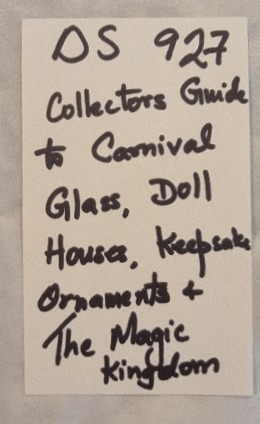 DS 927
Collectors Guide
to Carnival
Glass, Doll
Houses, Keepsake
Ornaments &
The Magic
Kingdom